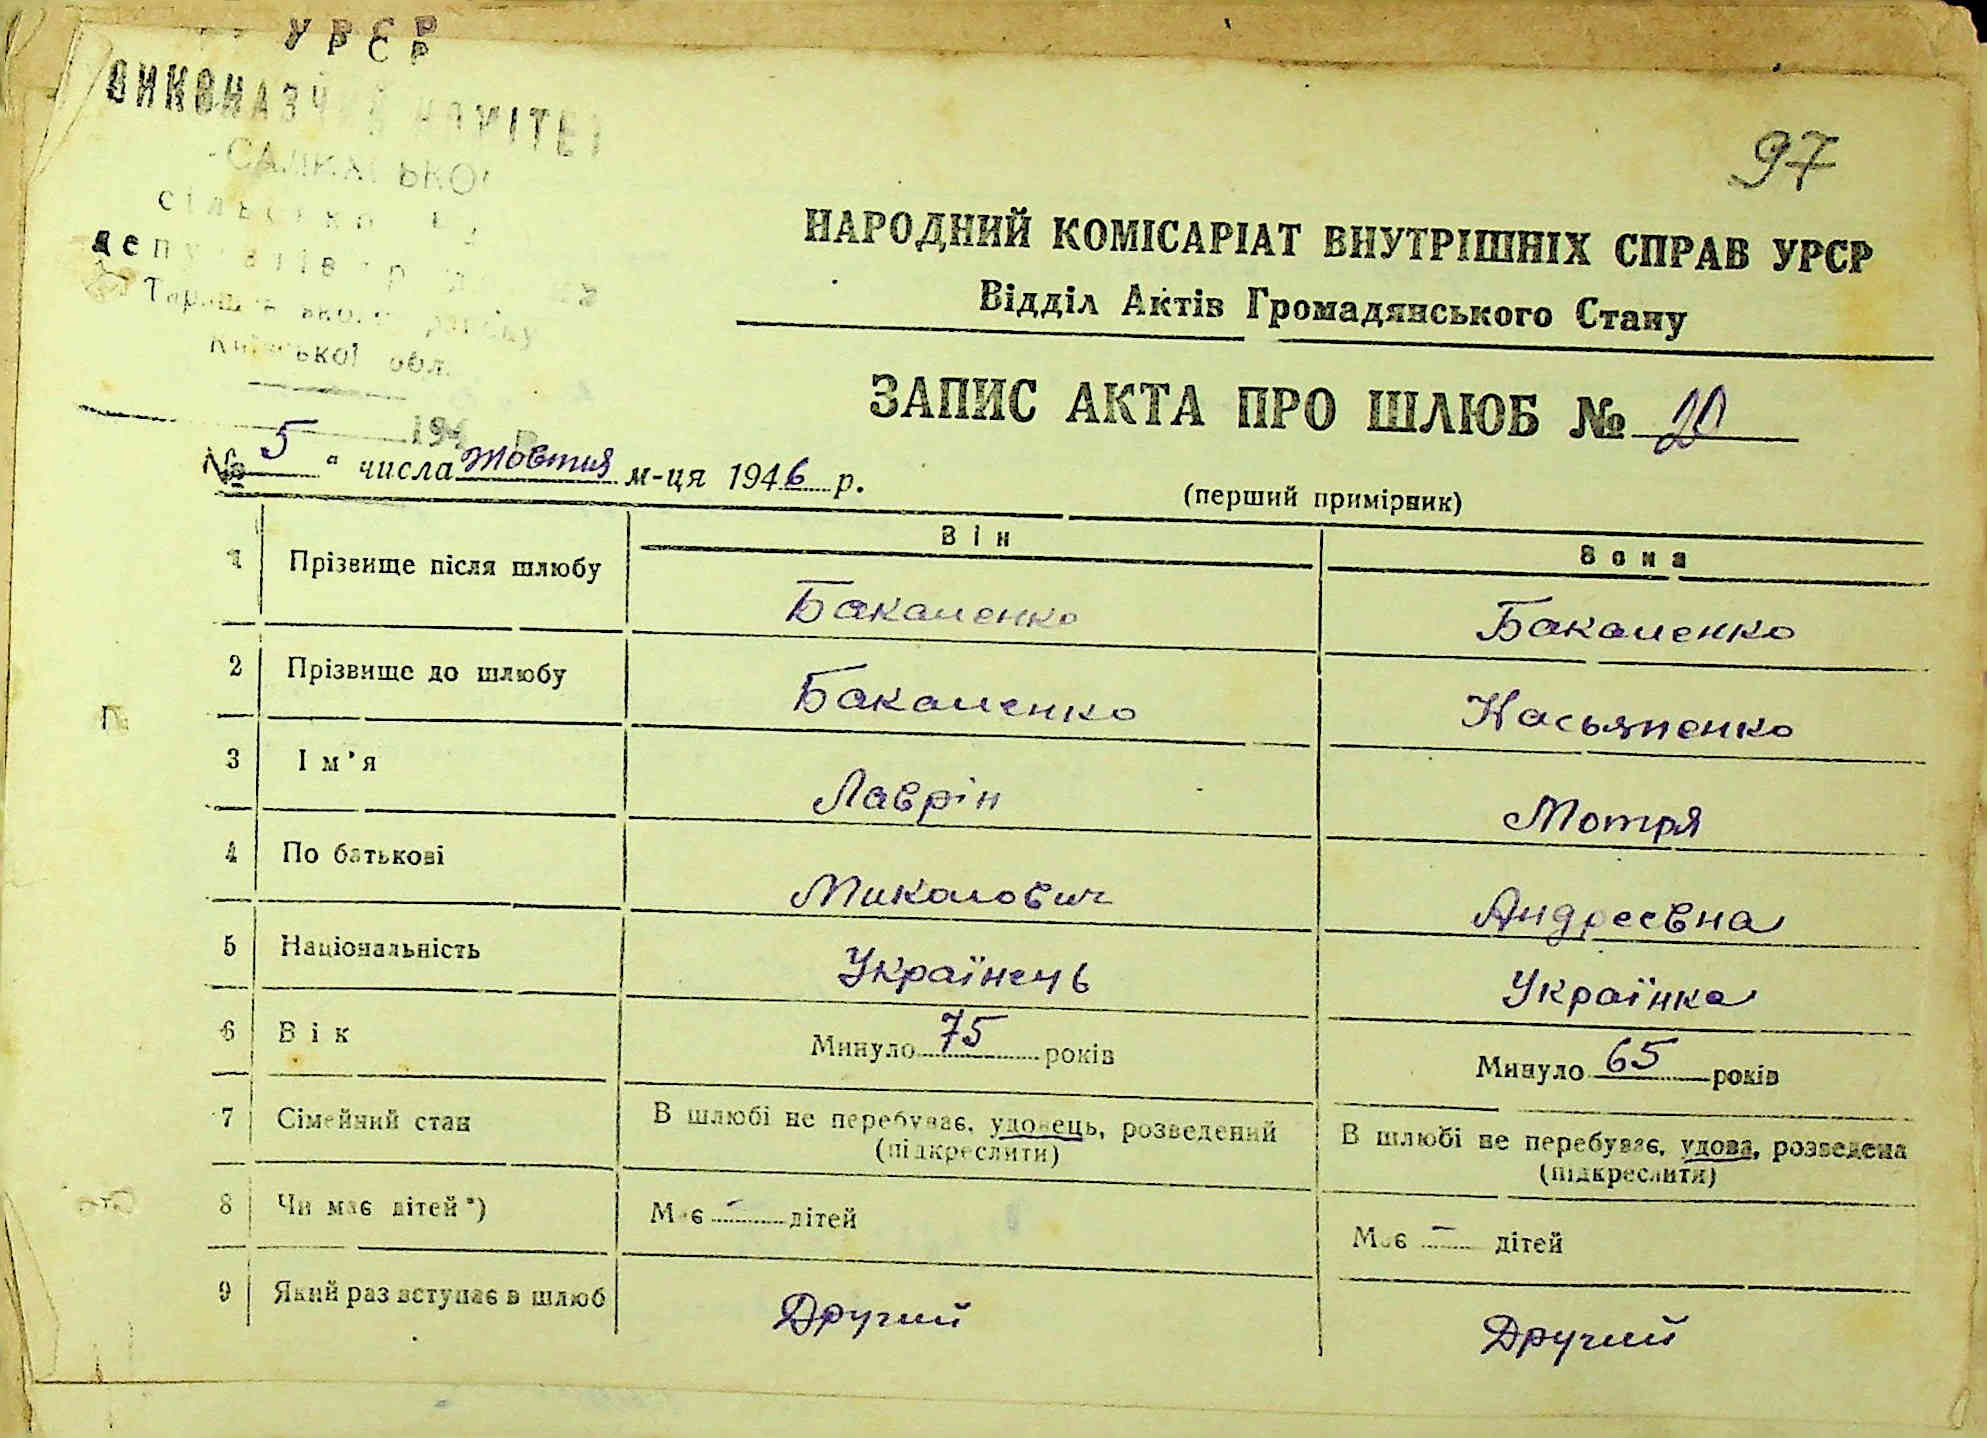 УРСР
ВИКОНАЗЧИЙ КОМІТЕТ
Київської обл.
194 р.
97
НАРОДНИЙ КОМІСАРІАТ ВНУТРІШНІХ СПРАВ УРСР
Відділ Актів Громадянського Стану
ЗАПИС АКТА ПРО ШЛЮБ № 20
№ 5 " числа жовтня м-ця 1946 р.
(перший примірник)
Він Вона
1 Прізвище після шлюбу Бакаленко Бакаленко
2 Прізвище до шлюбу Бакаленко Касьяненко
3 Ім'я Лаврін Мотря
4 По батькові Миколович Андреєвна
5 Національність Українець Українка
6 Вік Минуло 75 років Минуло 65 років
7 Сімейний стан В шлюбі не перебуває, удовець, розведений (підкреслити) В шлюбі не перебуває, удова, розведена (підкреслити)
8 Чи має дітей*) Має - дітей Має - дітей
9 Який раз вступає в шлюб Другий Другий